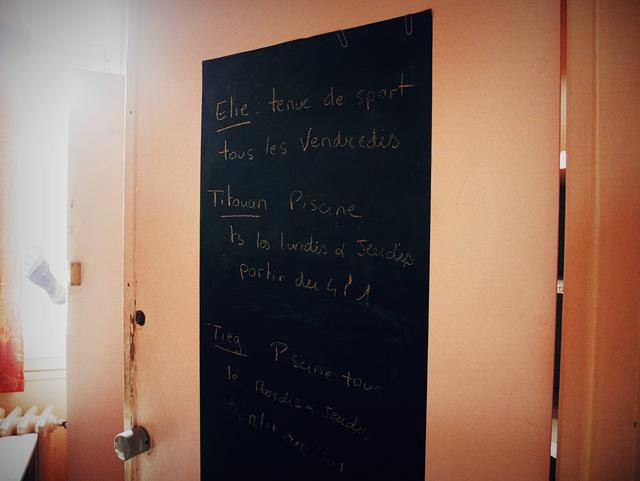 Elie : tenue de sport
tous les Vendredis
Titouan Piscine
ts les lundis & Jeudis
partir du 4/1
Tieg Piscine tous
le Mardis & Jeudis